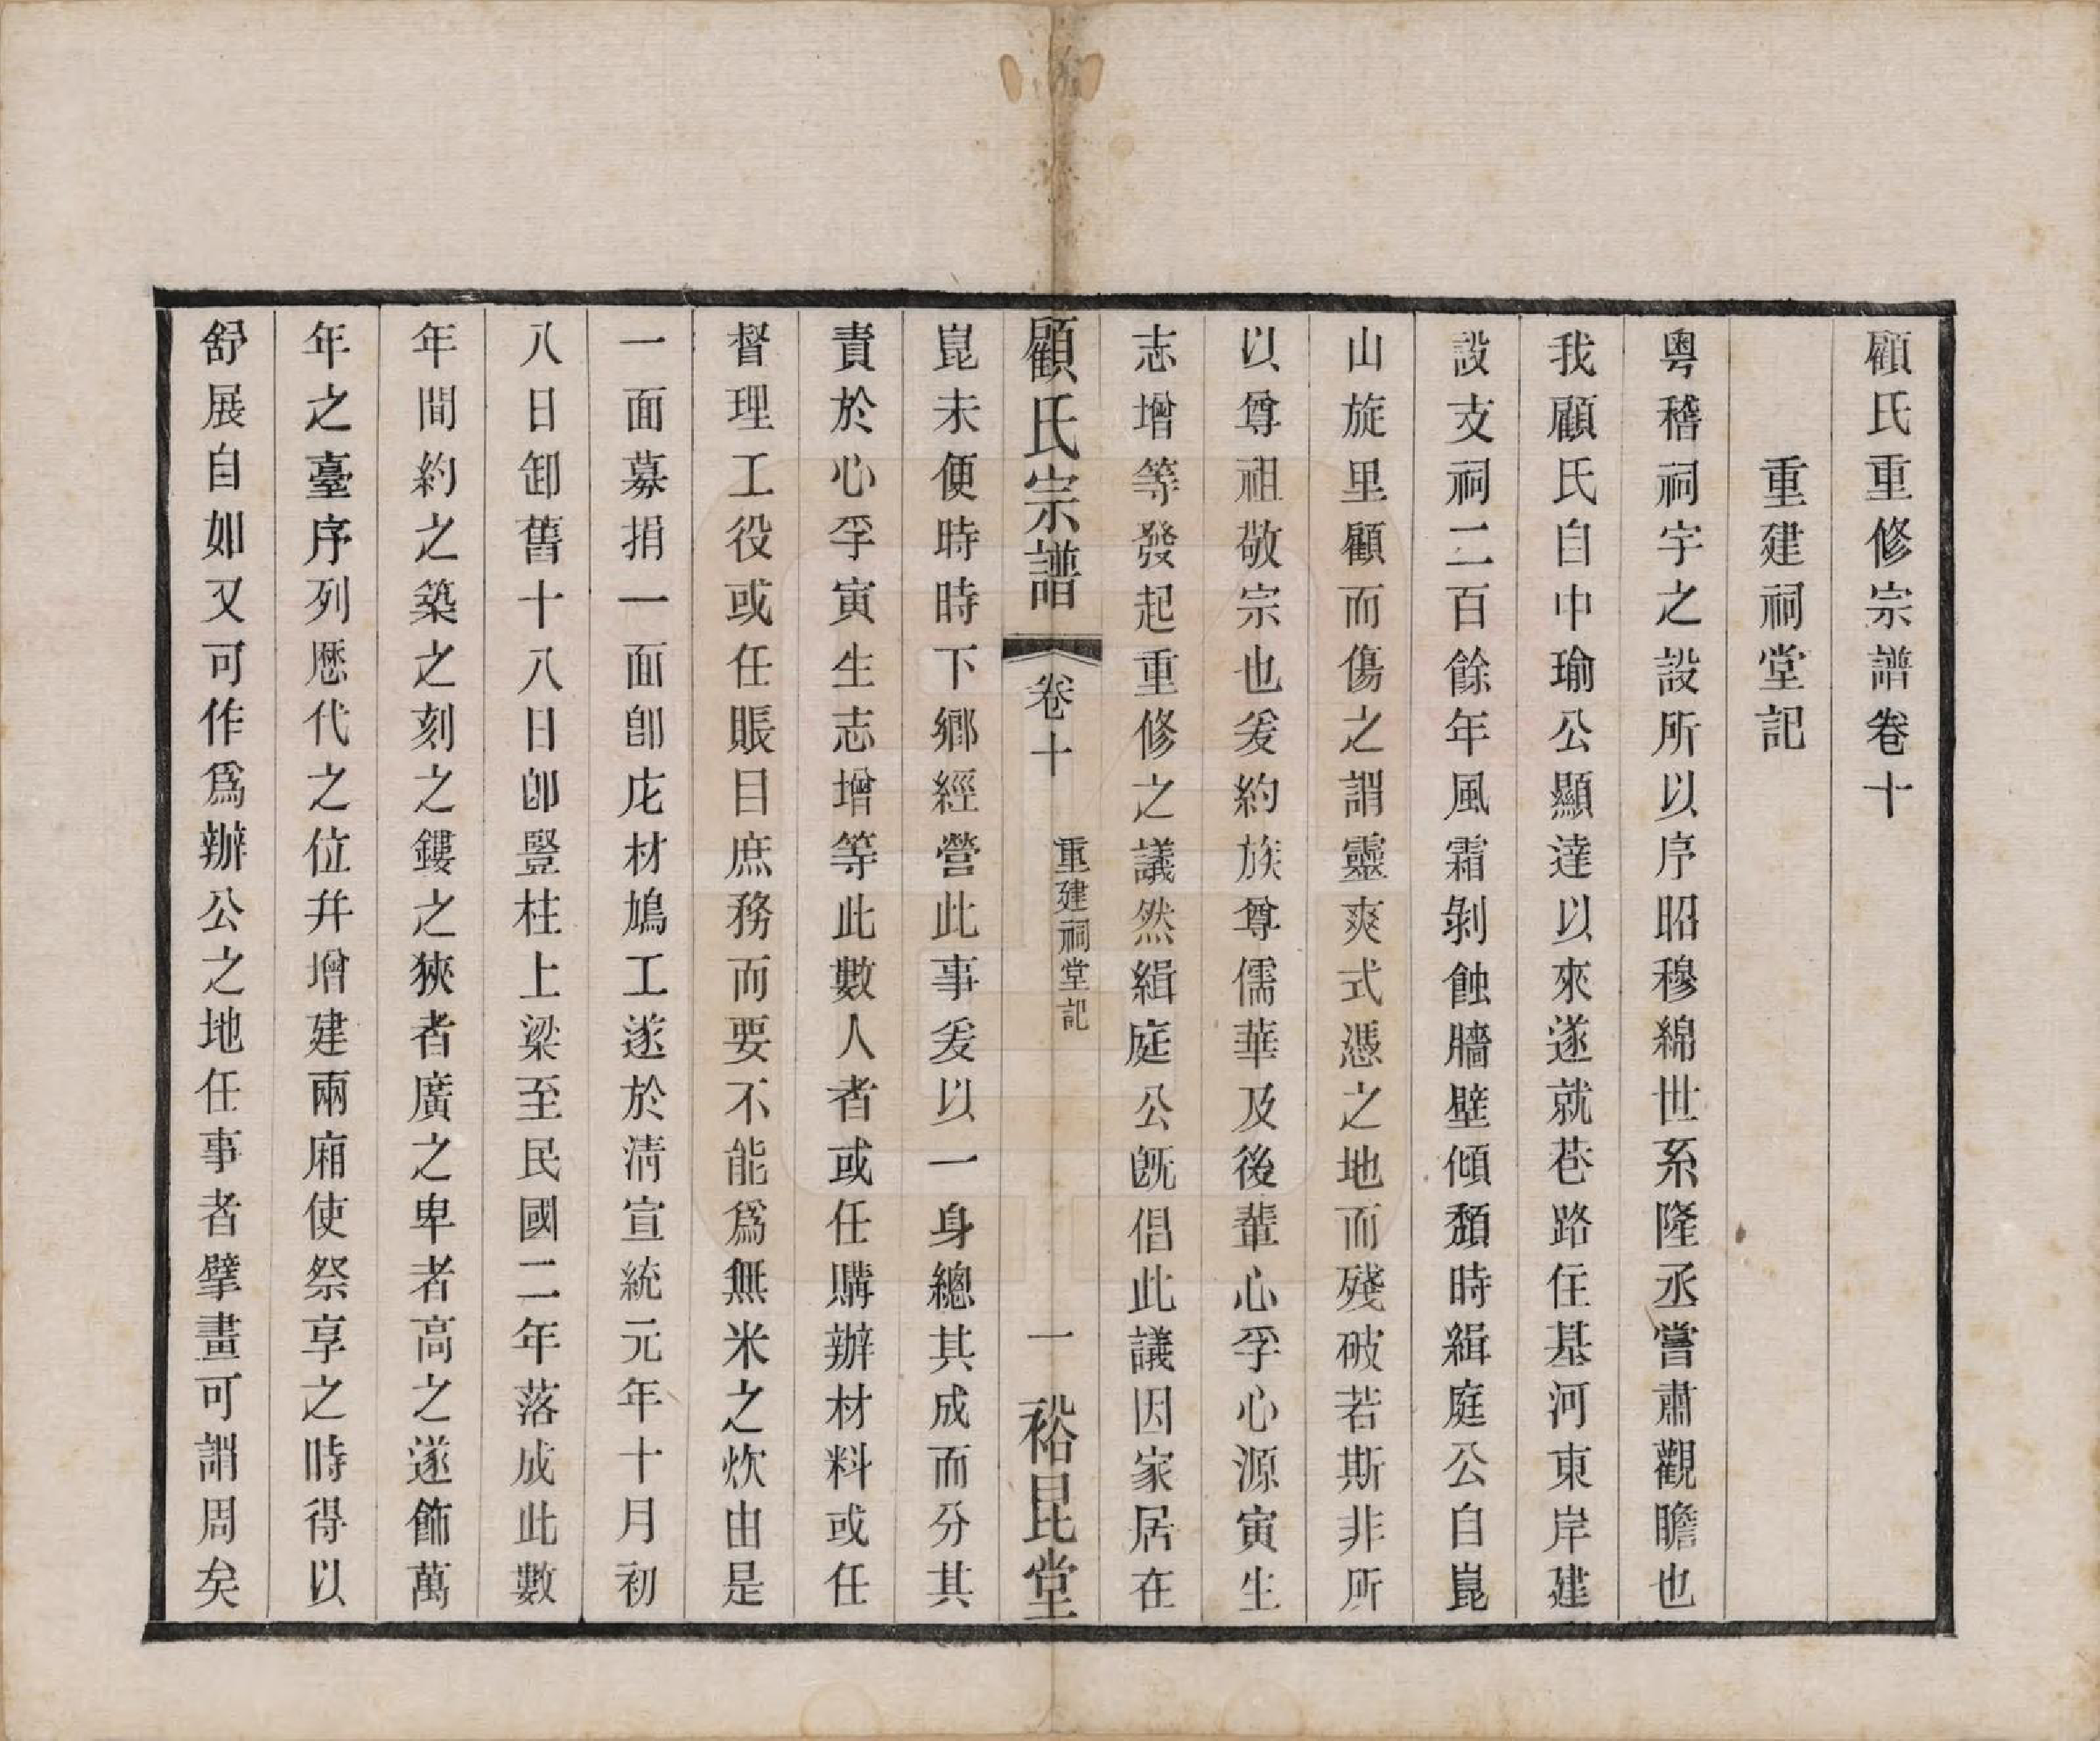 顧氏重修宗譜卷十
重建祠堂記
粵稽祠宇之設所以序昭穆綿世系隆丞嘗肅觀瞻也
我顧氏自中瑜公顯達以來遂就巷路住基河東岸建
設支祠二百餘年風霜剝蝕牆壁傾頹時緝庭公自崑
山旋里顧而傷之謂靈爽式憑之地而殘破若斯非所
以尊祖敬宗也爰約族尊儒華及後輩心孚心源寅生
志增等發起重修之議然緝庭公旣倡此議因家居在
顧氏宗譜 卷十 重建祠堂記 一 裕昆堂
崑未便時時下鄉經營此事爰以一身總其成而分其
責於心孚寅生志增等此數人者或任購辦材料或任
督理工役或任賬目庶務而要不能爲無米之炊由是
一面募捐一面卽庀材鳩工遂於淸宣統元年十月初
八日卸舊十八日卽豎柱上梁至民國二年落成此數
年間約之築之刻之鏤之狹者廣之卑者高之遂飾萬
年之臺序列歷代之位幷增建兩廂使祭享之時得以
舒展自如又可作爲辦公之地任事者擘畫可謂周矣